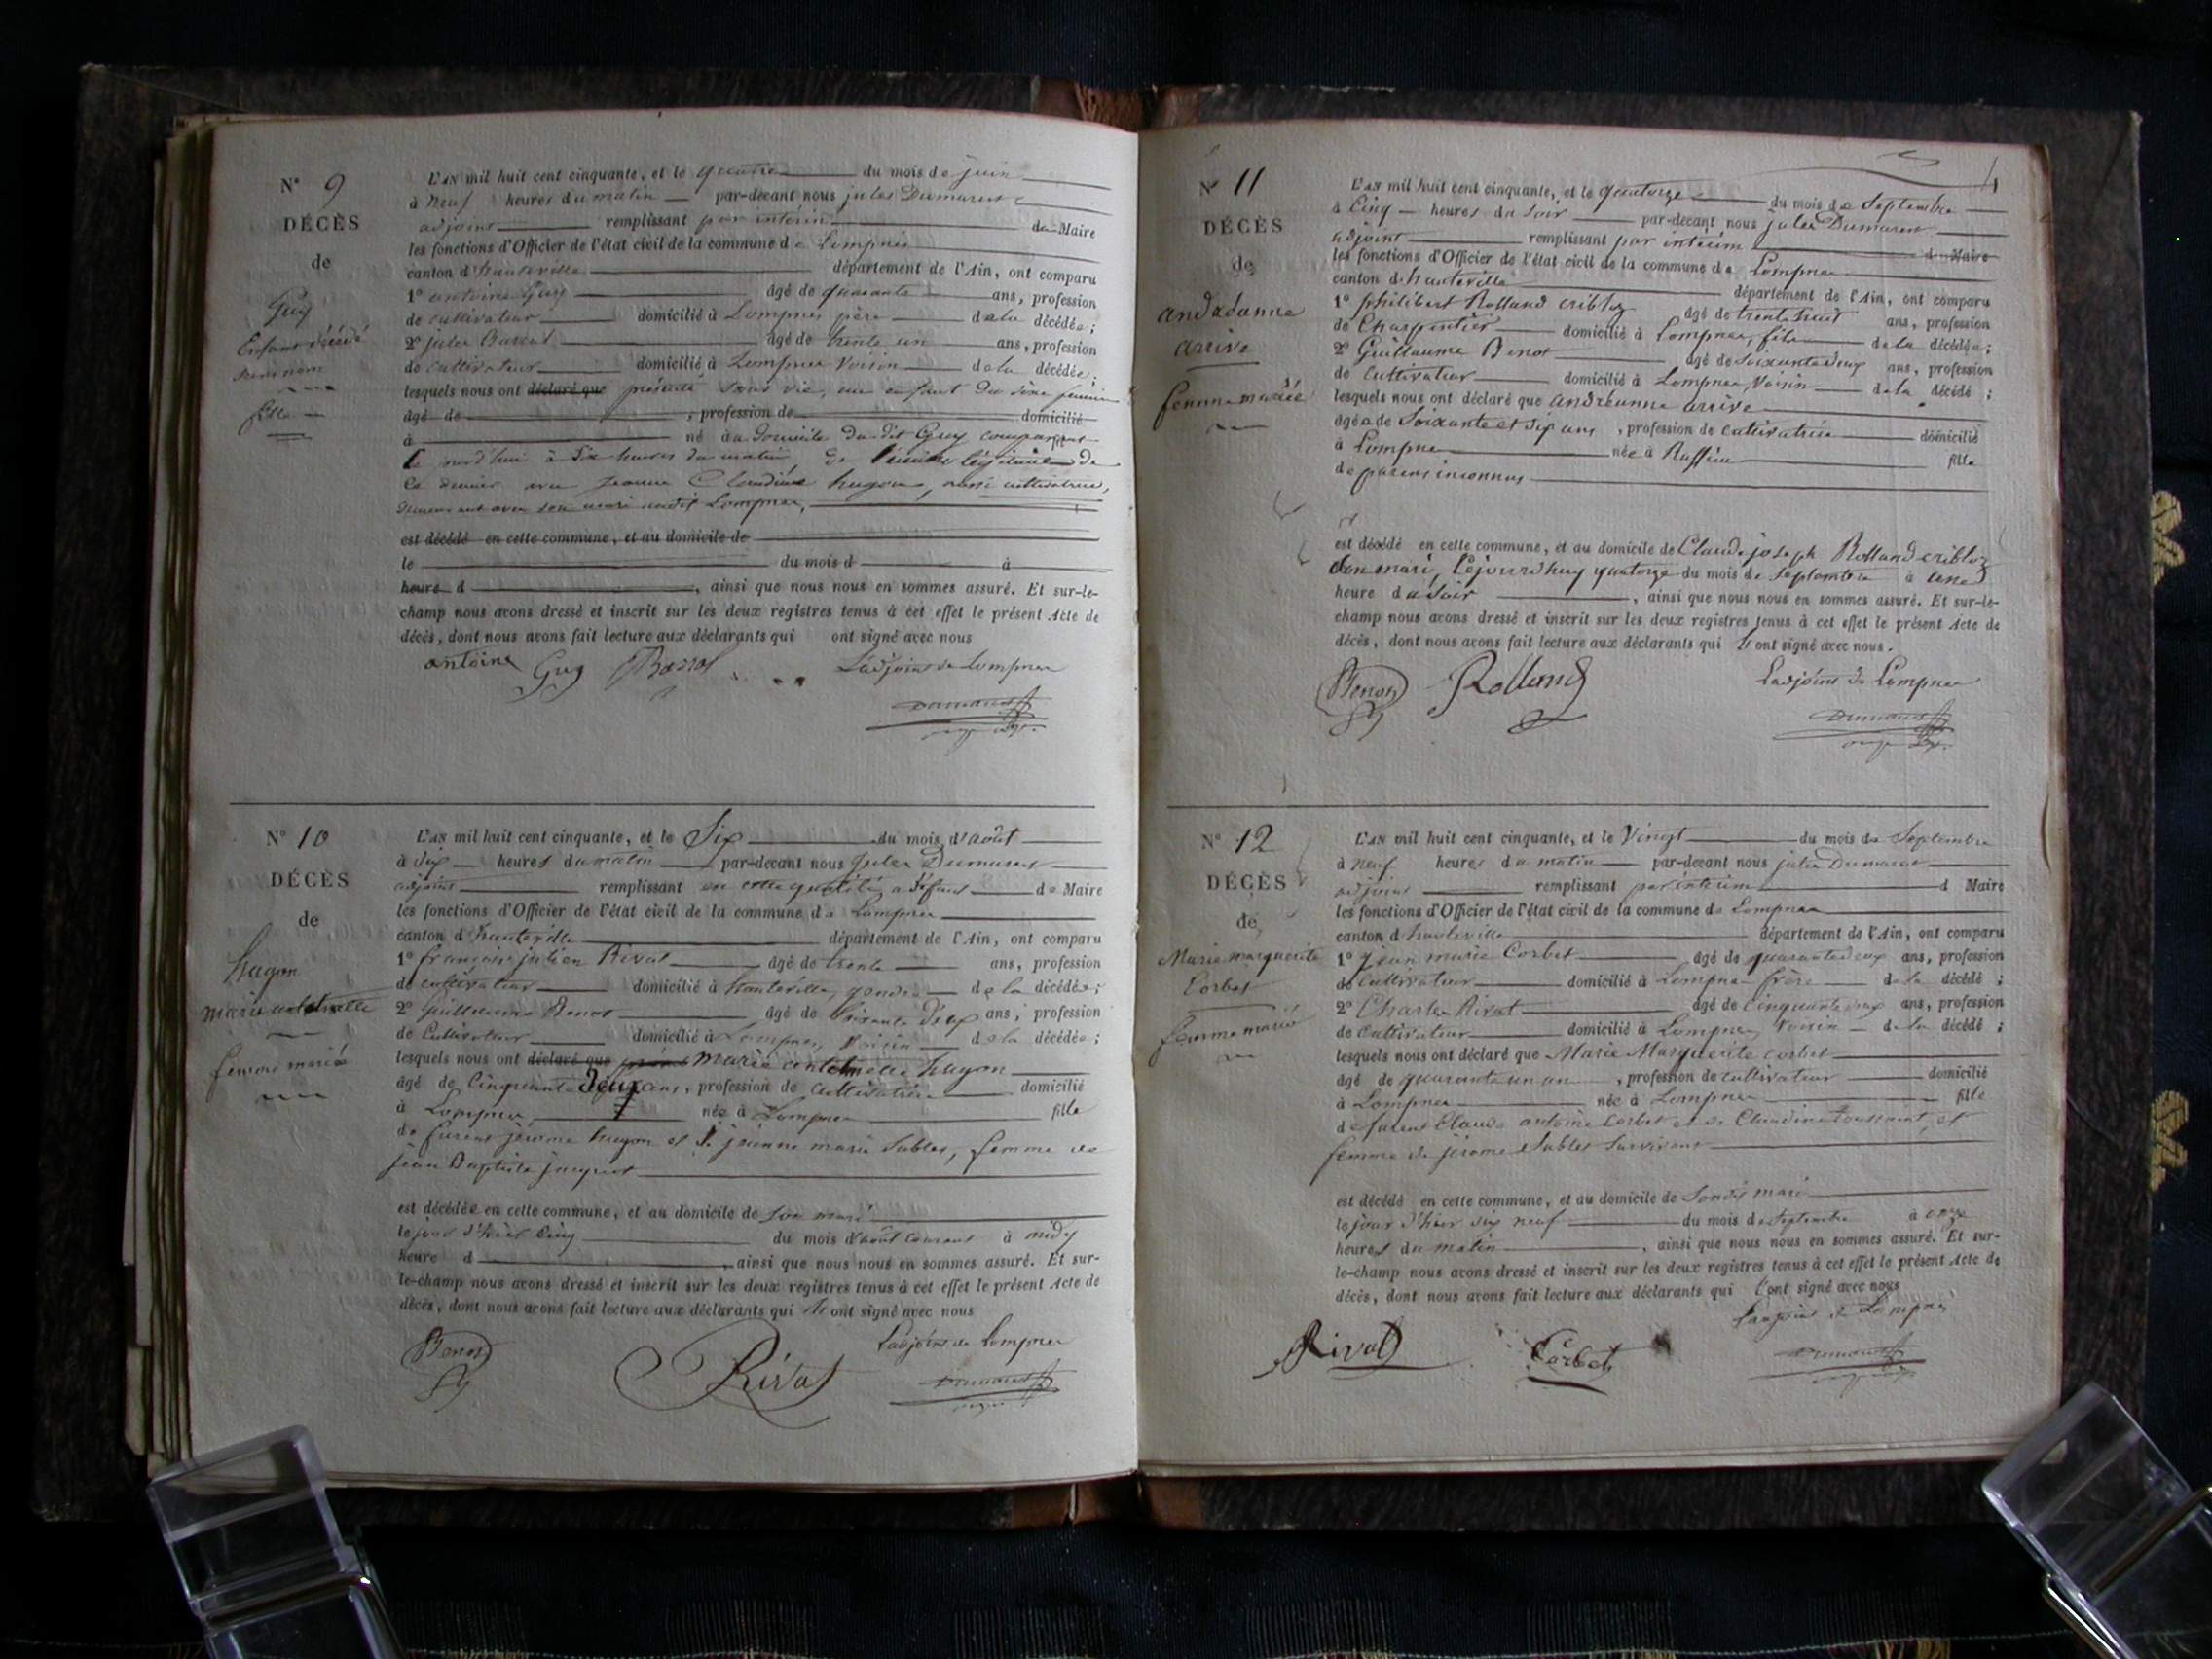 N° 9
DÉCÈS
de
Guy
Enfant décédé
sans nom
fille
L'AN mil huit cent cinquante, et le quatre du mois de juin
à neuf heures du matin par-devant nous jules Dumarest
adjoint remplissant par intérim de Maire
les fonctions d'Officier de l'état civil de la commune de Lompnes
canton d'hauteville département de l'Ain, ont comparu
1° antoine Guy âgé de quarante ans, profession
de cultivateur domicilié à Lompnes père de la décédée;
2° jules Barrat âgé de trente un ans, profession
de cultivateur domicilié à Lompnes Voisin de la décédée;
lesquels nous ont déclaré que présenté sans vie, un enfant du sexe féminin
âgé de , profession de domicilié
à né au domicile du dit Guy comparant
à six heures du matin de l'union légitime de
ce dernier avec jeanne Claudine hugon, aussi cultivatrice,
demeurant avec son mari audit Lompnes,
est décédé en cette commune, et au domicile de
le du mois d à
heure d , ainsi que nous nous en sommes assuré. Et sur-le-
champ nous avons dressé et inscrit sur les deux registres tenus à cet effet le présent Acte de
décès, dont nous avons fait lecture aux déclarants qui ont signé avec nous
antoine Guy Barrat L'adjoint de Lompnes
Dumarest
N° 10
DÉCÈS
de
hugon
marie
femme mariée
L'AN mil huit cent cinquante, et le Six du mois d'août
à six heures du matin par-devant nous jules Dumarest
adjoint remplissant en cette qualité, a défaut de Maire
les fonctions d'Officier de l'état civil de la commune de Lompnes
canton d'hauteville département de l'Ain, ont comparu
1° françois julien Rivat âgé de trente ans, profession
de cultivateur domicilié à hauteville, gendre de la décédée;
2° Guillaume Benot âgé de soixante deux ans, profession
de Cultivateur domicilié à Lompnes, Voisin de la décédée;
lesquels nous ont déclaré que marie hugon
âgé de cinquante deux ans, profession de cultivatrice domicilié
à Lompnes née à Lompnes fille
de furent jérome hugon et jeanne marie Sublet, femme de
jean Baptiste jacquet
est décédée en cette commune, et au domicile de son mari
le jour d'hier cinq du mois d'août courant à midy
heure d , ainsi que nous nous en sommes assuré. Et sur-
le-champ nous avons dressé et inscrit sur les deux registres tenus à cet effet le présent Acte de
décès, dont nous avons fait lecture aux déclarants qui ont signé avec nous
Benot Rivat L'adjoint de Lompnes
Dumarest
N° 11
DÉCÈS
de
andréanne
arrive
femme mariée
L'AN mil huit cent cinquante, et le quatorze du mois de Septembre
à Cinq heures du Soir par-devant nous jules Dumarest
adjoint remplissant par intérim d Maire
les fonctions d'Officier de l'état civil de la commune de Lompnes
canton d'hauteville département de l'Ain, ont comparu
1° philibert Rolland cribloz âgé de trente huit ans, profession
de Charpentier domicilié à Lompnes, fils de la décédée;
2° Guillaume Benot âgé de soixante deux ans, profession
de Cultivateur domicilié à Lompnes, Voisin de la décédé;
lesquels nous ont déclaré que andréanne arrive
âgée de Soixante et six ans, profession de cultivatrice domicilié
à Lompnes née à Ruffieu fille
de parens inconnus
est décédé en cette commune, et au domicile de Claude joseph Rolland cribloz
son mari, Cejourd'huy quatorze du mois de Septembre à une
heure du Soir , ainsi que nous nous en sommes assuré. Et sur-le-
champ nous avons dressé et inscrit sur les deux registres tenus à cet effet le présent Acte de
décès, dont nous avons fait lecture aux déclarants qui ont signé avec nous.
Benot Rolland L'adjoint de Lompnes
Dumarest
N° 12
DÉCÈS
de
Marie marguerite
Corbet
femme mariée
L'AN mil huit cent cinquante, et le Vingt du mois de Septembre
à neuf heures du matin par-devant nous jules Dumarest
adjoint remplissant par intérim d Maire
les fonctions d'Officier de l'état civil de la commune de Lompnes
canton d'hauteville département de l'Ain, ont comparu
1° jean marie Corbet âgé de quarante deux ans, profession
de cultivateur domicilié à Lompnes frère de la décédé;
2° Charles Rivat âgé de cinquante deux ans, profession
de cultivateur domicilié à Lompnes, Voisin de la décédé;
lesquels nous ont déclaré que Marie Marguerite corbet
âgé de quarante un an, profession de cultivateur domicilié
à Lompnes née à Lompnes fille
de furent Claude antoine Corbet et de Claudine toussaint, et
femme de jérome Sublet Survivant
est décédé en cette commune, et au domicile de Sondit mari
le jour d'hier dix neuf du mois de septembre à onze
heures du matin , ainsi que nous nous en sommes assuré. Et sur-
le-champ nous avons dressé et inscrit sur les deux registres tenus à cet effet le présent Acte de
décès, dont nous avons fait lecture aux déclarants qui ont signé avec nous
L'adjoint de Lompnes
Rivat Corbet Dumarest